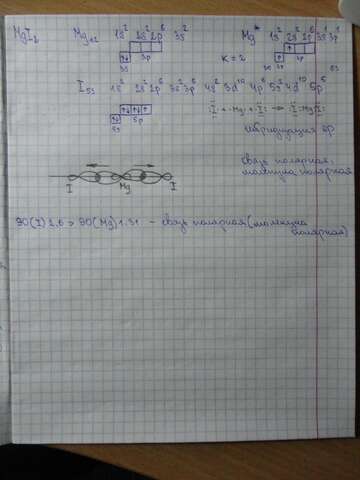 MgI₂ Mg₁₂ 1s² 2s² 2p⁶ 3s² Mg* 1s² 2s² 2p⁶ 3s¹ 3p¹
3p
3s K = 2
I₅₃ 1s² 2s² 2p⁶ 3s² 3p⁶ 4s² 3d¹⁰ 4p⁶ 5s² 4d¹⁰ 5p⁵
5p I + Mg + I: → :I:Mg:I:
5s гибридизация sp
связь полярная,
молекула полярная
I Mg I
ЭО(I) 2,6 > ЭО(Mg) 1.31 - связь полярная (молекула
полярная)